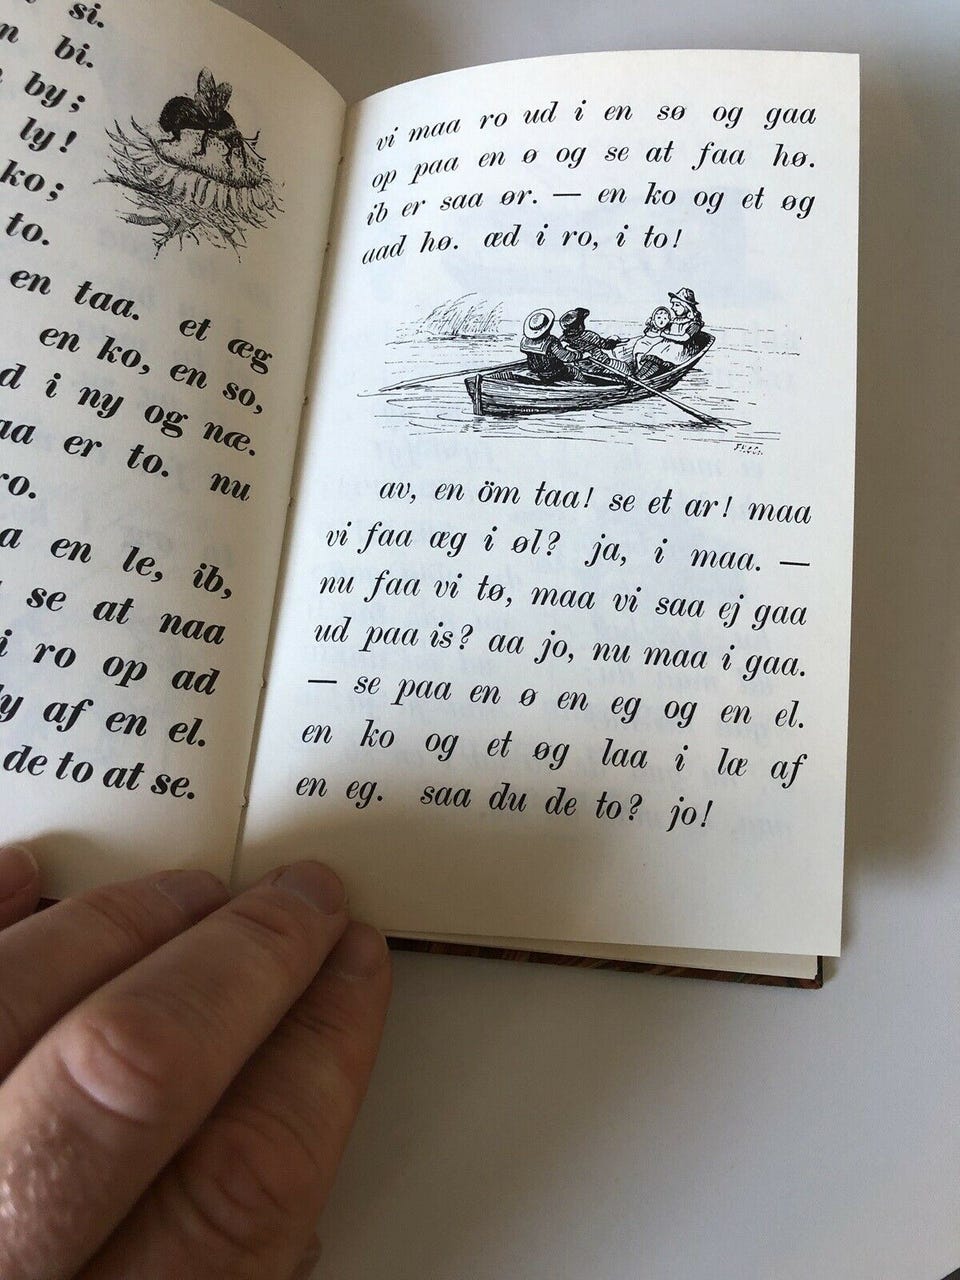 si.
bi.
by;
ly!
ko;
to.
en taa. et æg
en ko, en so,
i ny og næ.
er to. nu
ro.
en le, ib,
se at naa
ro op ad
af en el.
de to at se.
vi maa ro ud i en sø og gaa
op paa en ø og se at faa hø.
ib er saa ør. — en ko og et øg
aad hø. æd i ro, i to!
av, en öm taa! se et ar! maa
vi faa æg i øl? ja, i maa. —
nu faa vi tø, maa vi saa ej gaa
ud paa is? aa jo, nu maa i gaa.
— se paa en ø en eg og en el.
en ko og et øg laa i læ af
en eg. saa du de to? jo!